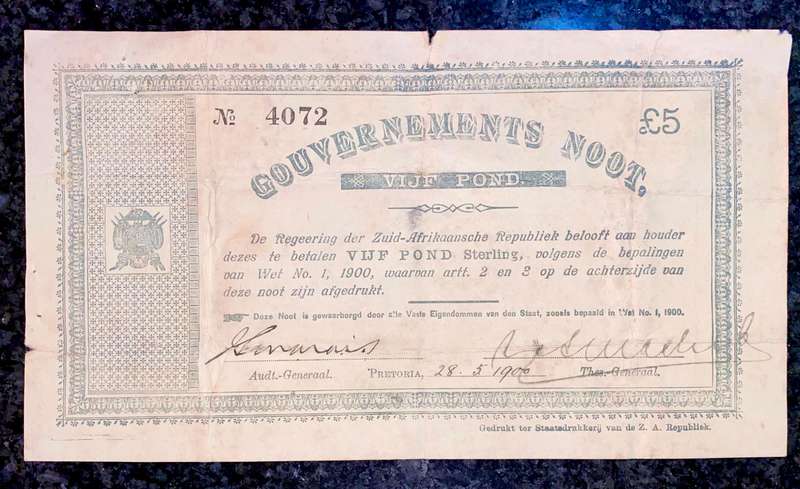 № 4072
£5
GOUVERNEMENTS NOOT,
VIJF POND.
De Regeering der Zuid-Afrikaansche Republiek belooft aan houder
dezes te betalen VIJF POND Sterling, volgens de bepalingen
van Wet No. 1, 1900, waarvan artt. 2 en 3 op de achterzijde van
deze noot zijn afgedrukt.
Deze Noot is gewaarborgd door alle Vaste Eigendommen van den Staat, zooals bepaald in Wet No. 1, 1900.
Audt.-Generaal. PRETORIA, 28 . 5 1900 Thes.-Generaal.
Gedrukt ter Staatsdrukkerij van de Z. A. Republiek.